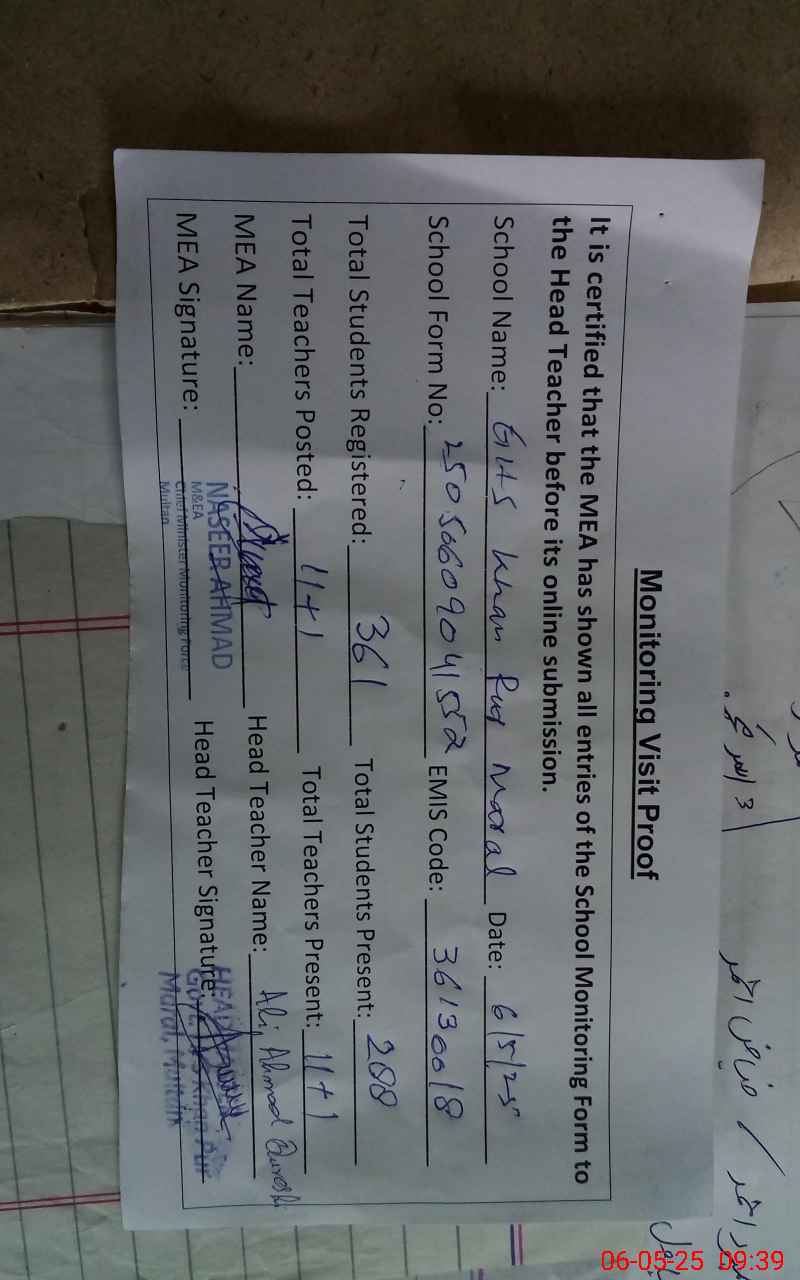 Monitoring Visit Proof
It is certified that the MEA has shown all entries of the School Monitoring Form to
the Head Teacher before its online submission.
School Name: GHS Khan Pur Maral Date: 6/5/25
School Form No: 25050609041552 EMIS Code: 36130018
Total Students Registered: 361 Total Students Present: 288
Total Teachers Posted: 11+1 Total Teachers Present: 11+1
MEA Name: Head Teacher Name: Ali Ahmad Qureshi
NASEER AHMAD
MEA Signature: M&EA Head Teacher Signature:
Chief Minister Monitoring Force
Multan
HEAD
Govt. HS Khan Pur
Maral, Multan
06-05-25 09:39